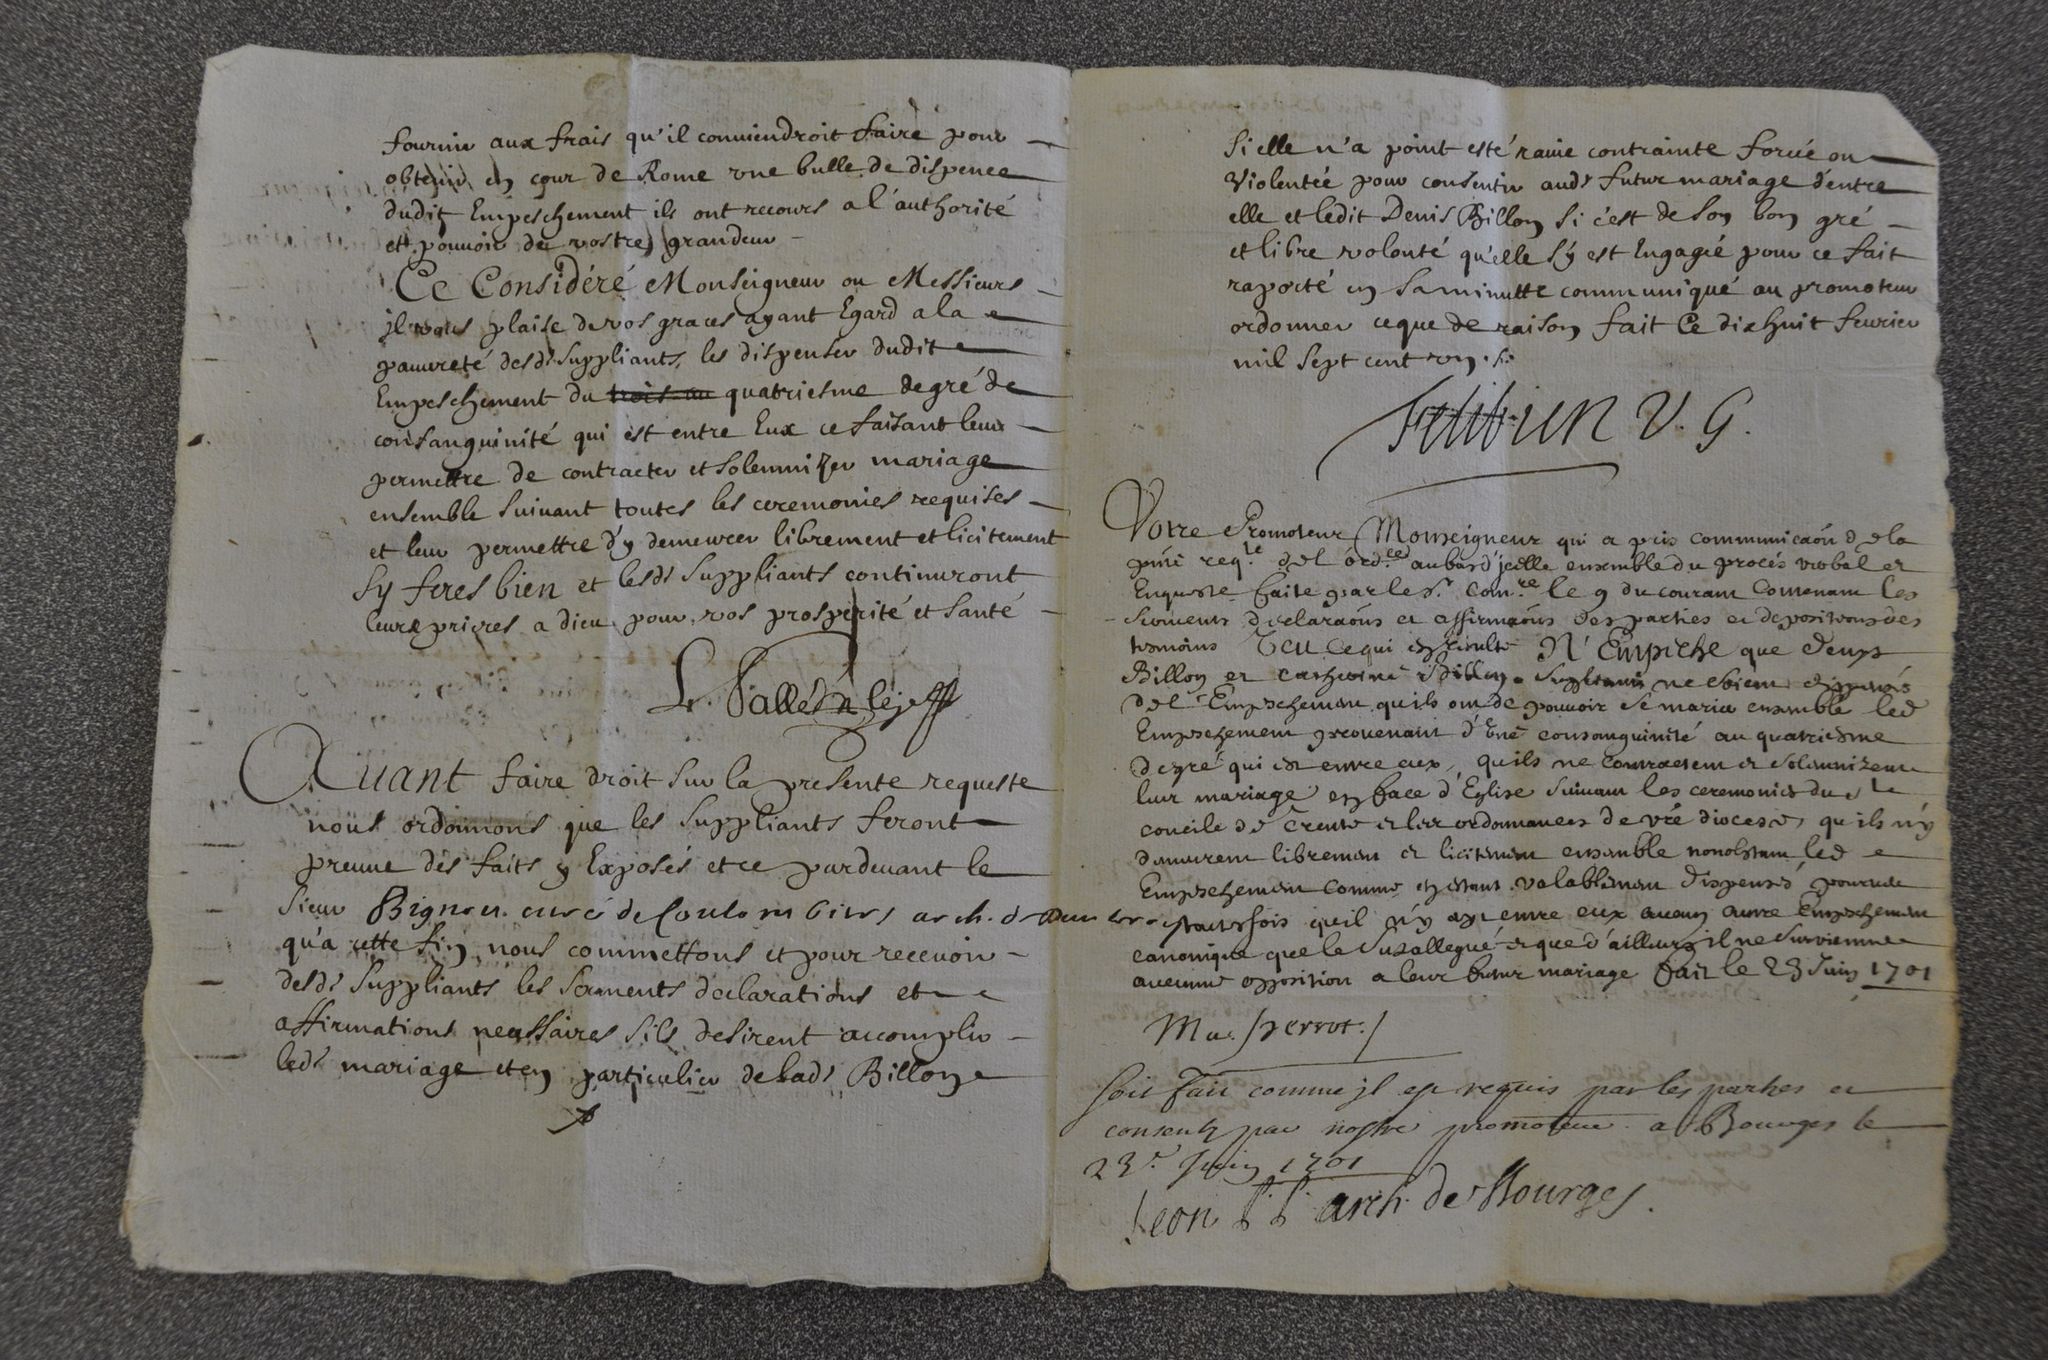 fournir aux frais qu'il conviendroit faire pour
obtenir en cour de Rome une bulle de dispence
dudit Empeschement ils ont recours a l'authorité
et pouvoir de vostre grandeur
Ce Considéré Monseigneur ou Messieurs
il vous plaise de vos graces ayant Egard a la
pauvreté desds suppliants, les dispenser dudit
Empeschement du trois au quatriesme degré de
consanguinité qui est entre Eux ce faisant leur
permettre de contracter et solemnizer mariage
ensemble suivant toutes les ceremonies requises
et leur permettre d'y demeurer librement et licitement
sy feres bien et lesds suppliants continuront
leurs prieres a dieu pour vos prosperité et santé
Avant faire droit sur la presente requeste
nous ordonnons que les suppliants feront
preuve des faits y Exposés et ce pardevant le
sieur Bignon curé de Coulombiers arch. de
qu'a cette fin nous commettons et pour recevoir
desds suppliants les serments declarations et
affirmations necessaires s'ils desirent accomplir
leds mariage et en particulier de lads Billon
si elle n'a point esté ravie contrainte forcée ou
violentée pour consentir auds futur mariage d'entre
elle et ledit Denis Billon si c'est de son bon gré
et libre volonté qu'elle s'y est Engagée pour ce fait
raporté en sa minutte communiqué au promoteur
ordonner ce que de raison fait Ce dixhuit fevrier
mil sept cent un
V. G.
Votre Promoteur Monseigneur qui a pris communicaõn de la
pñte reqte de l'ordce au bas d'icelle ensemble du procés verbal et
Enqueste faite par le sr comre le 9 du courant Contenant les
serments declaraõns et affirmaõns des parties et depositions des
temoins Veu ce qui en resulte N'Empeche que Denys
Billon et Catherine Billon suppliants ne soient dispensés
de l'Empeschement qu'ils ont de pouvoir se marier ensemble led
Empeschement provenant d'Une consanguinité au quatriesme
degré qui est entre eux, qu'ils ne Contractent et solemnizent
leur mariage en face d'Eglise suivant les ceremonies du st
concile de Trente et les ordonnances de vre diocese, qu'ils n'y
demeurent librement et licitement ensemble nonobstant led
Empeschement comme en estant valablement dispensés pourveu
toutesfois qu'il n'y ayt entre eux aucun autre Empeschement
canonique que le susallegué et que d'ailleurs il ne survienne
aucunne opposition a leur futur mariage Fait le 23 Juin 1701
Perrot
soit fait comme il est requis par les parties et
consenty par nostre promoteur a Bourges le
23e Juin 1701
Leon P. P. arch. de Bourges.